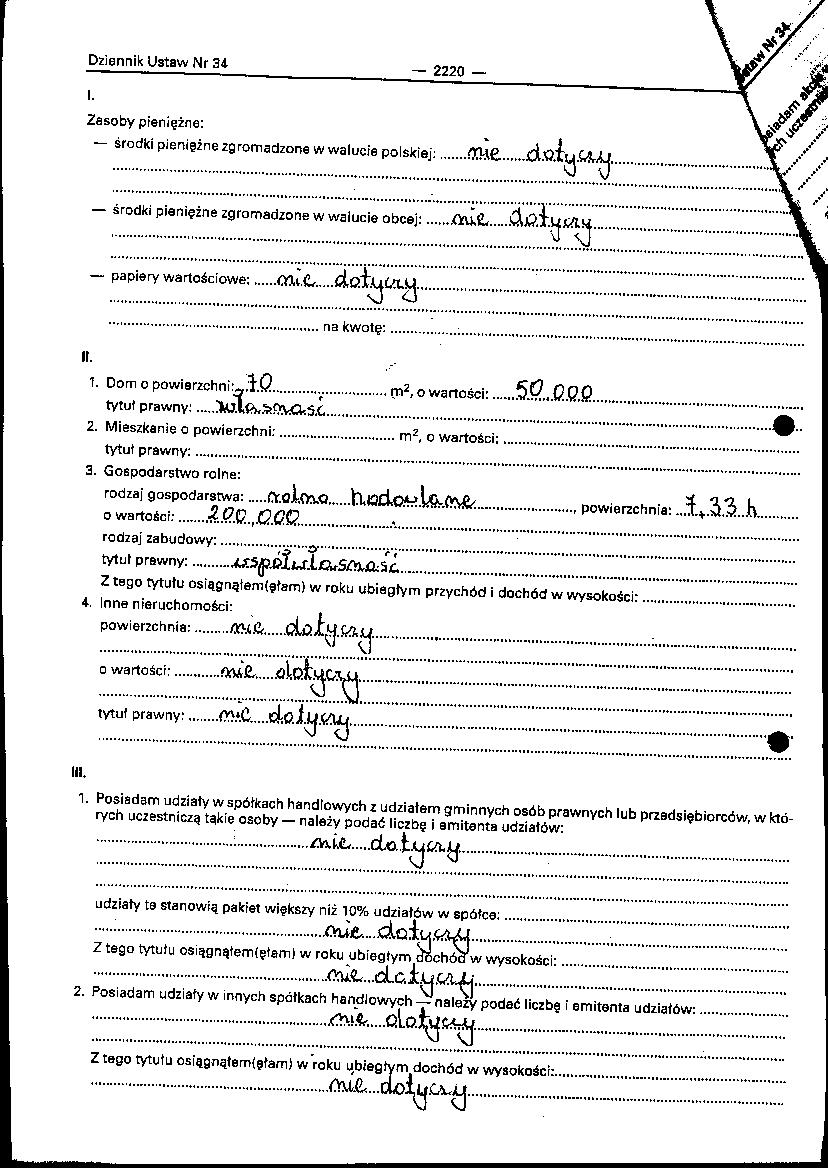 Dziennik Ustaw Nr 34 — 2220 —
I.
Zasoby pieniężne:
— środki pieniężne zgromadzone w walucie polskiej: nie dotyczy
— środki pieniężne zgromadzone w walucie obcej: nie dotyczy
— papiery wartościowe: nie dotyczy
na kwotę:
II.
1. Dom o powierzchni: 70 m², o wartości: 50.000
tytuł prawny: własność
2. Mieszkanie o powierzchni: m², o wartości:
tytuł prawny:
3. Gospodarstwo rolne:
rodzaj gospodarstwa: rolno hodowlane, powierzchnia: 7,33 h
o wartości: 200.000
rodzaj zabudowy:
tytuł prawny: współwłasność
Z tego tytułu osiągnąłem(ęłam) w roku ubiegłym przychód i dochód w wysokości:
4. Inne nieruchomości:
powierzchnia: nie dotyczy
o wartości: nie dotyczy
tytuł prawny: nie dotyczy
III.
1. Posiadam udziały w spółkach handlowych z udziałem gminnych osób prawnych lub przedsiębiorców, w któ-
rych uczestniczą takie osoby — należy podać liczbę i emitenta udziałów:
nie dotyczy
udziały te stanowią pakiet większy niż 10% udziałów w spółce:
nie dotyczy
Z tego tytułu osiągnąłem(ęłam) w roku ubiegłym dochód w wysokości:
nie dotyczy
2. Posiadam udziały w innych spółkach handlowych — należy podać liczbę i emitenta udziałów:
nie dotyczy
Z tego tytułu osiągnąłem(ęłam) w roku ubiegłym dochód w wysokości:
nie dotyczy